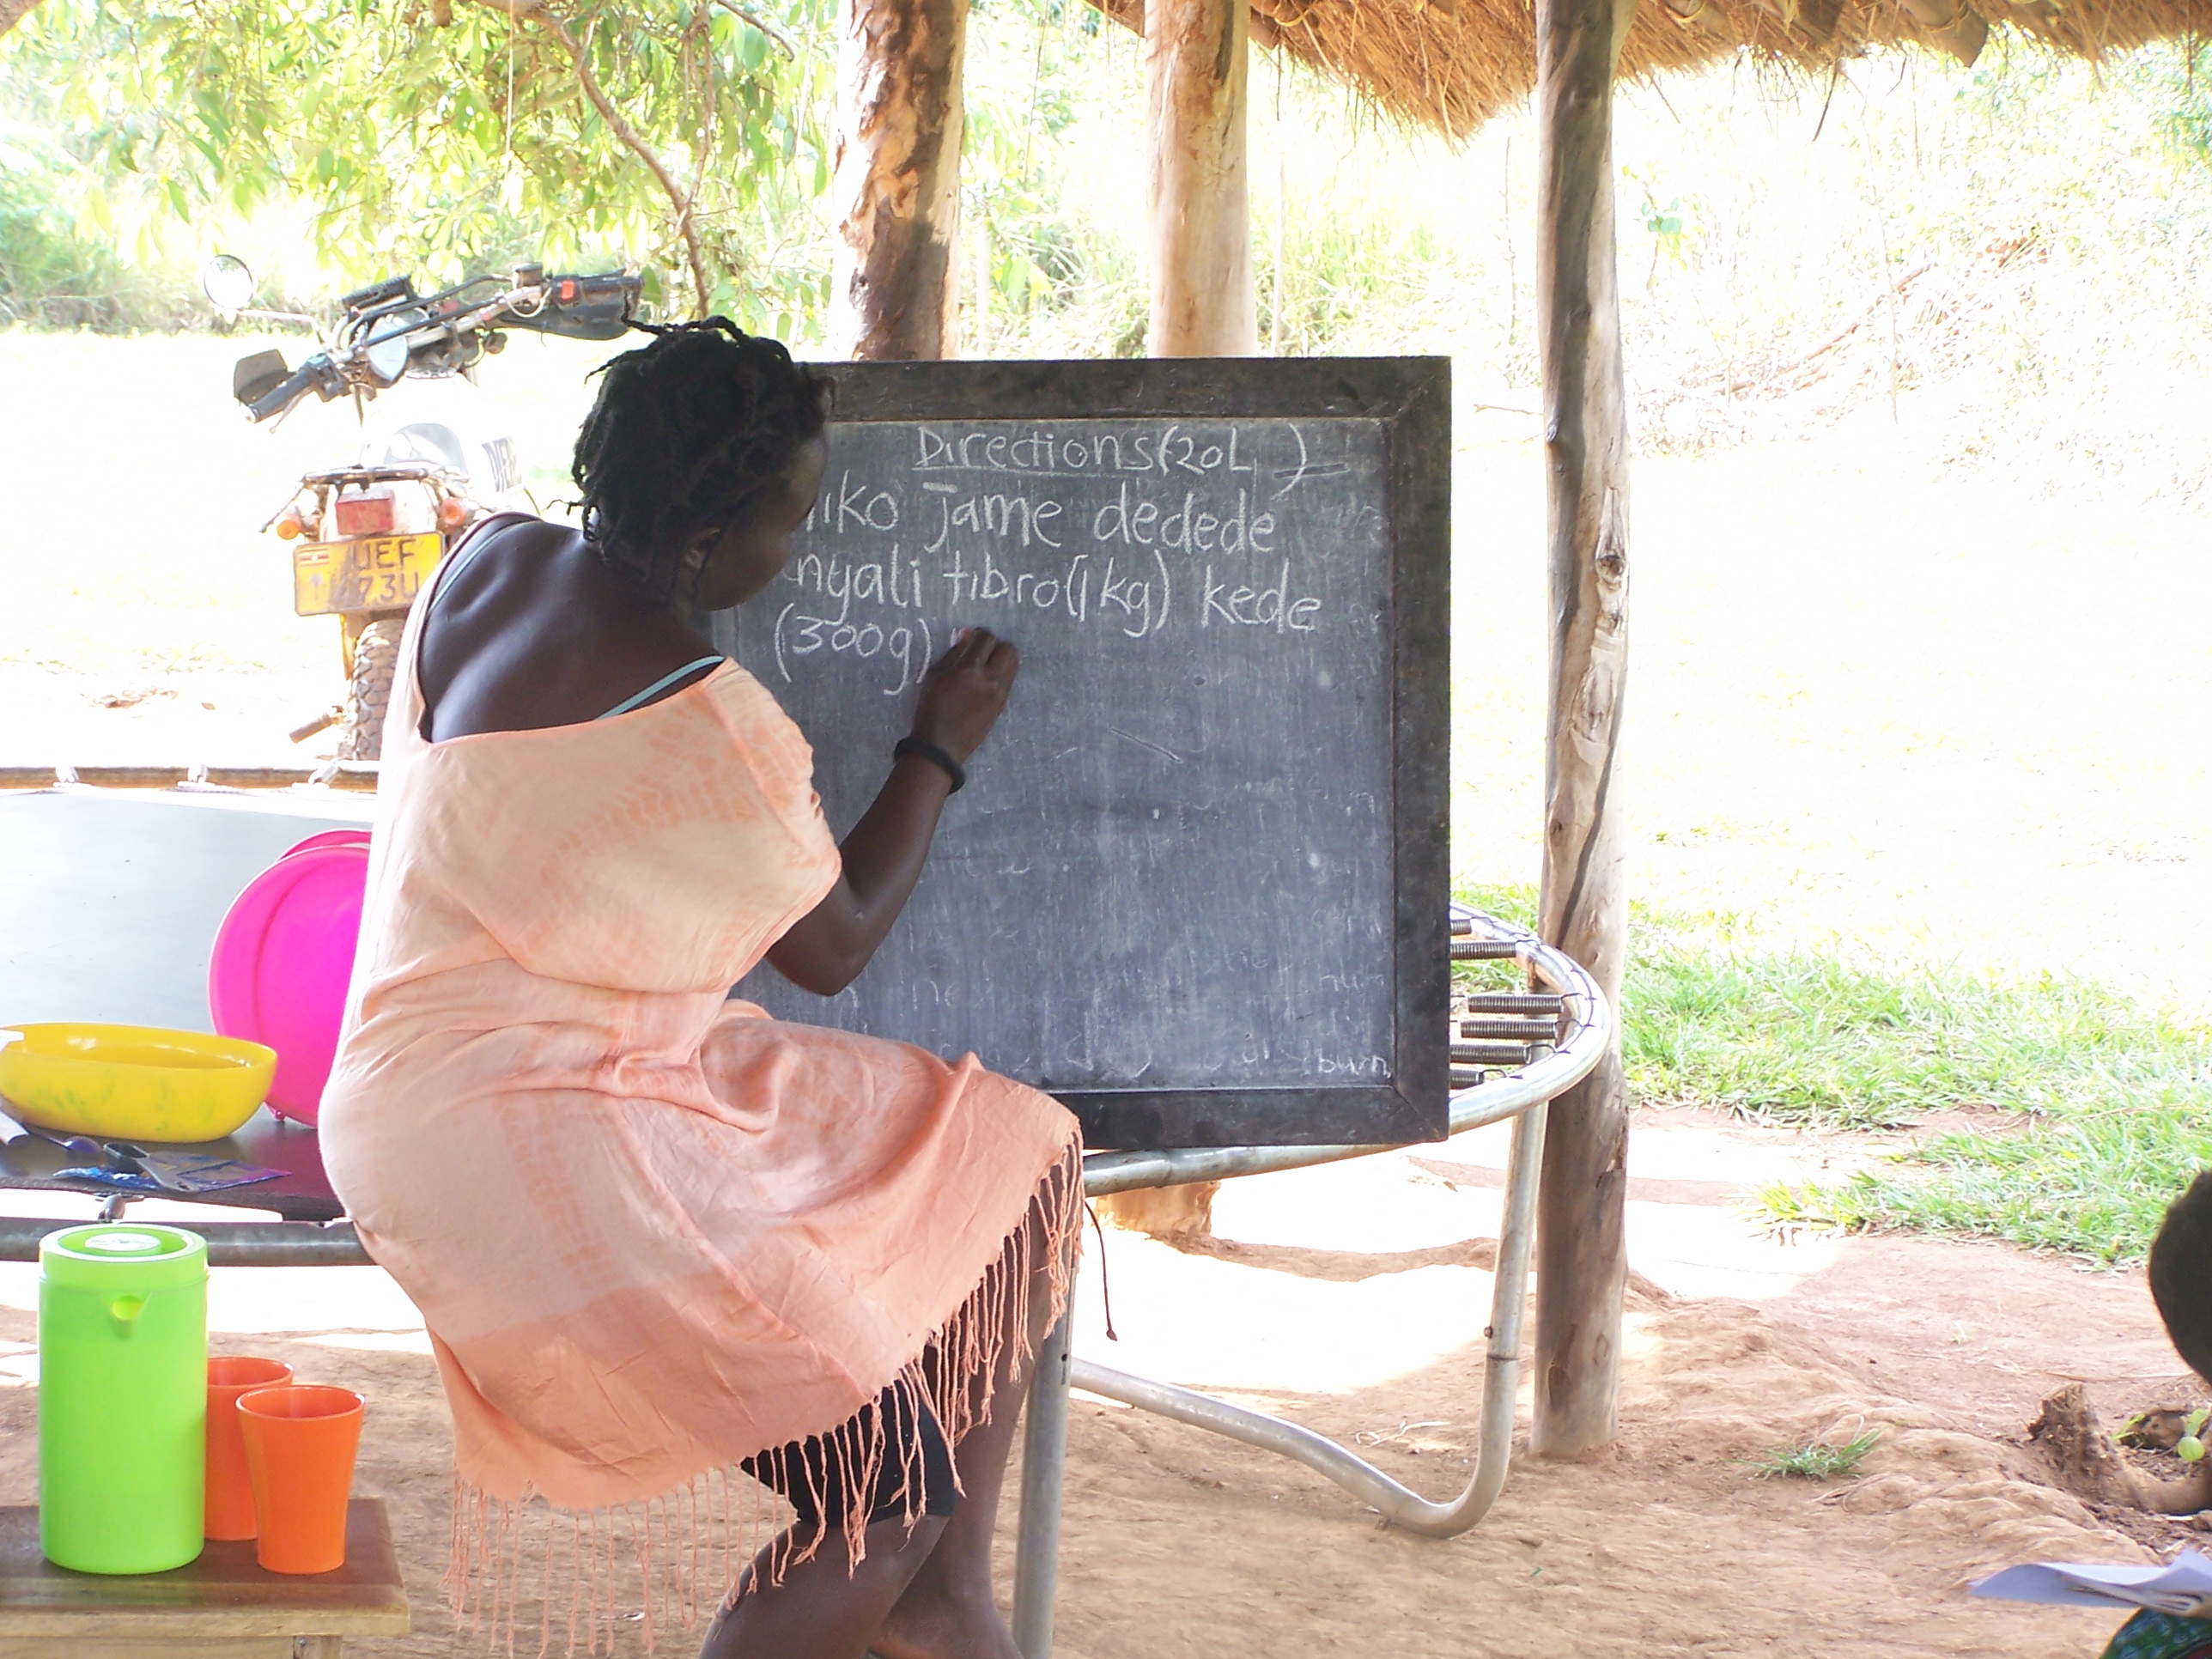 Directions (20L )
jame dedede
nyali tibro (1kg) kede
(300g)
burn
UEF
73U